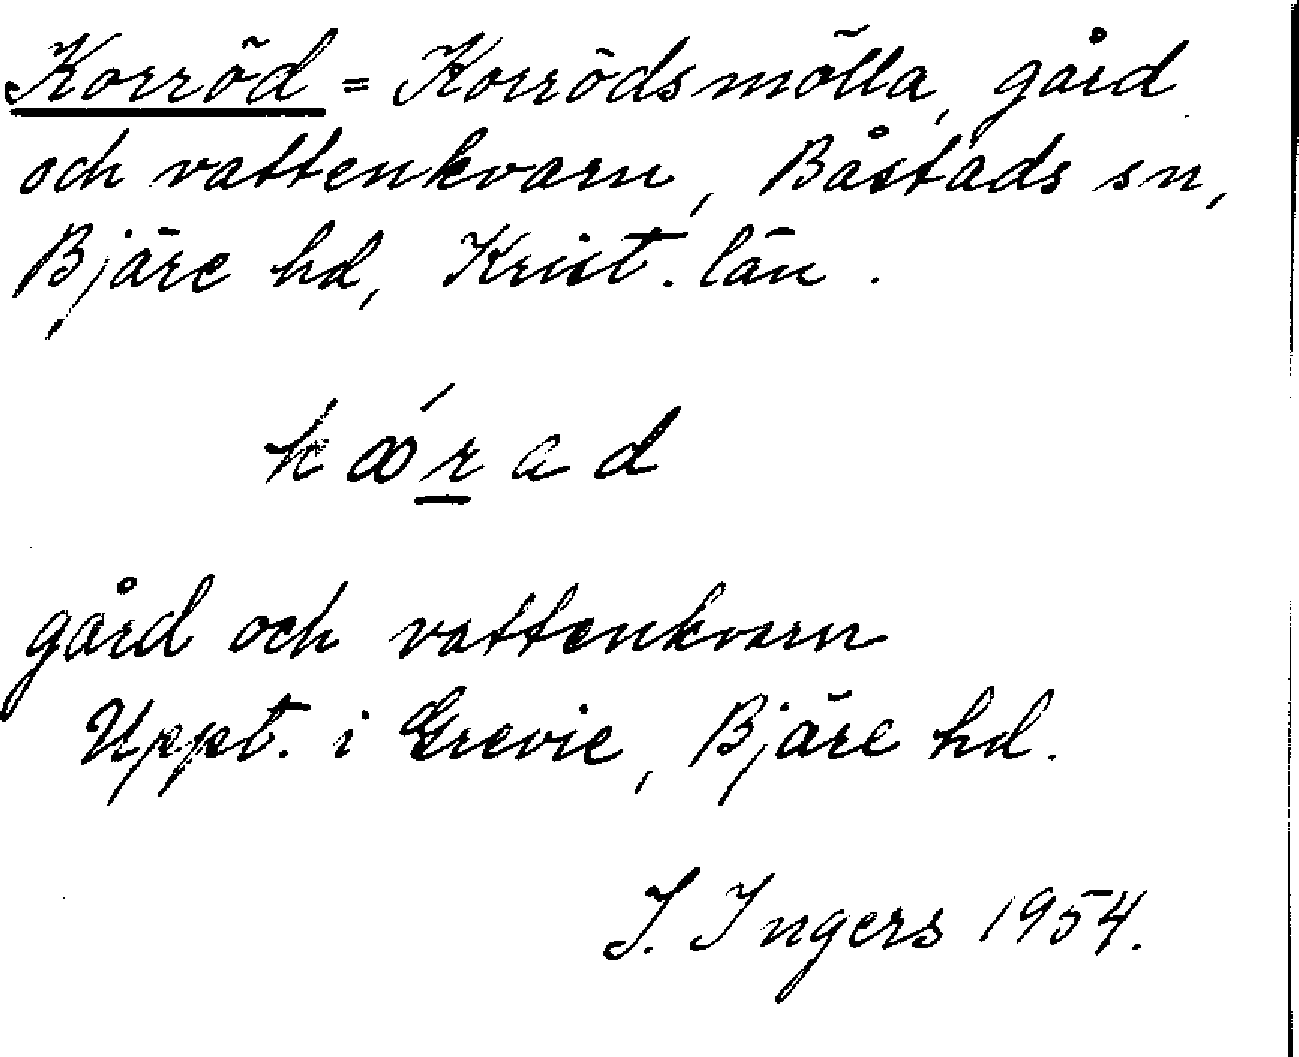 Korröd = Korrödsmölla, gård
och vattenkvarn, Båstads sn,
Bjäre hd, Krist. län.
kǽrad
gård och vattenkvarn
Uppt. i Grevie, Bjäre hd.
I. Ingers 1954.